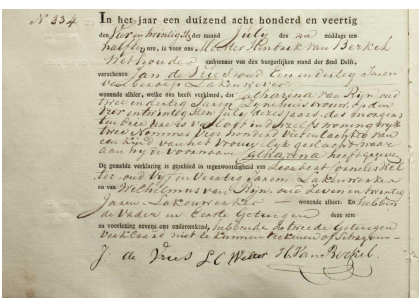 No 334. In het jaar een duizend acht honderd en veertig
den Vier en twintigsten der maand July des na middags ten
half ure, is voor ons Meester Hendrik van Berckel
Wethouder ambtenaar van den burgerlijken stand der Stad Delft,
verschenen Jan de Vries oud een en dertig Jaren
van beroep Lakenwever
wonende alhier, welke ons heeft verklaard, dat Catharina van Rijn oud
twee en dertig Jaren Zijne huisvrouw, op den
vier en twintigsten July dezes Jaars, des morgens,
ten twee ure is verlost in
twee Nommer Vier honderd vier en tachtig van
een kind van het Vrouwelijk geslacht, waar
aan hij de voornaam Catharina heeft gegeven
De gemelde verklaring is geschied in tegenwoordigheid van Leendert Cornelis Wel
ter oud Vijf en Veertig Jaren Lakenwerker
en van Wilhelmus van Rijn, oud Zeven en twintig
Jaren Lakenwerker wonende alhier. En hebben
de Vader en Eerste Getuigen deze acte
na voorlezing nevens ons onderteekend, hebbende de tweede Getuigen
verklaard niet te kunnen teekenen of schrijven
J. de Vries L C Welter H. Van Berckel.